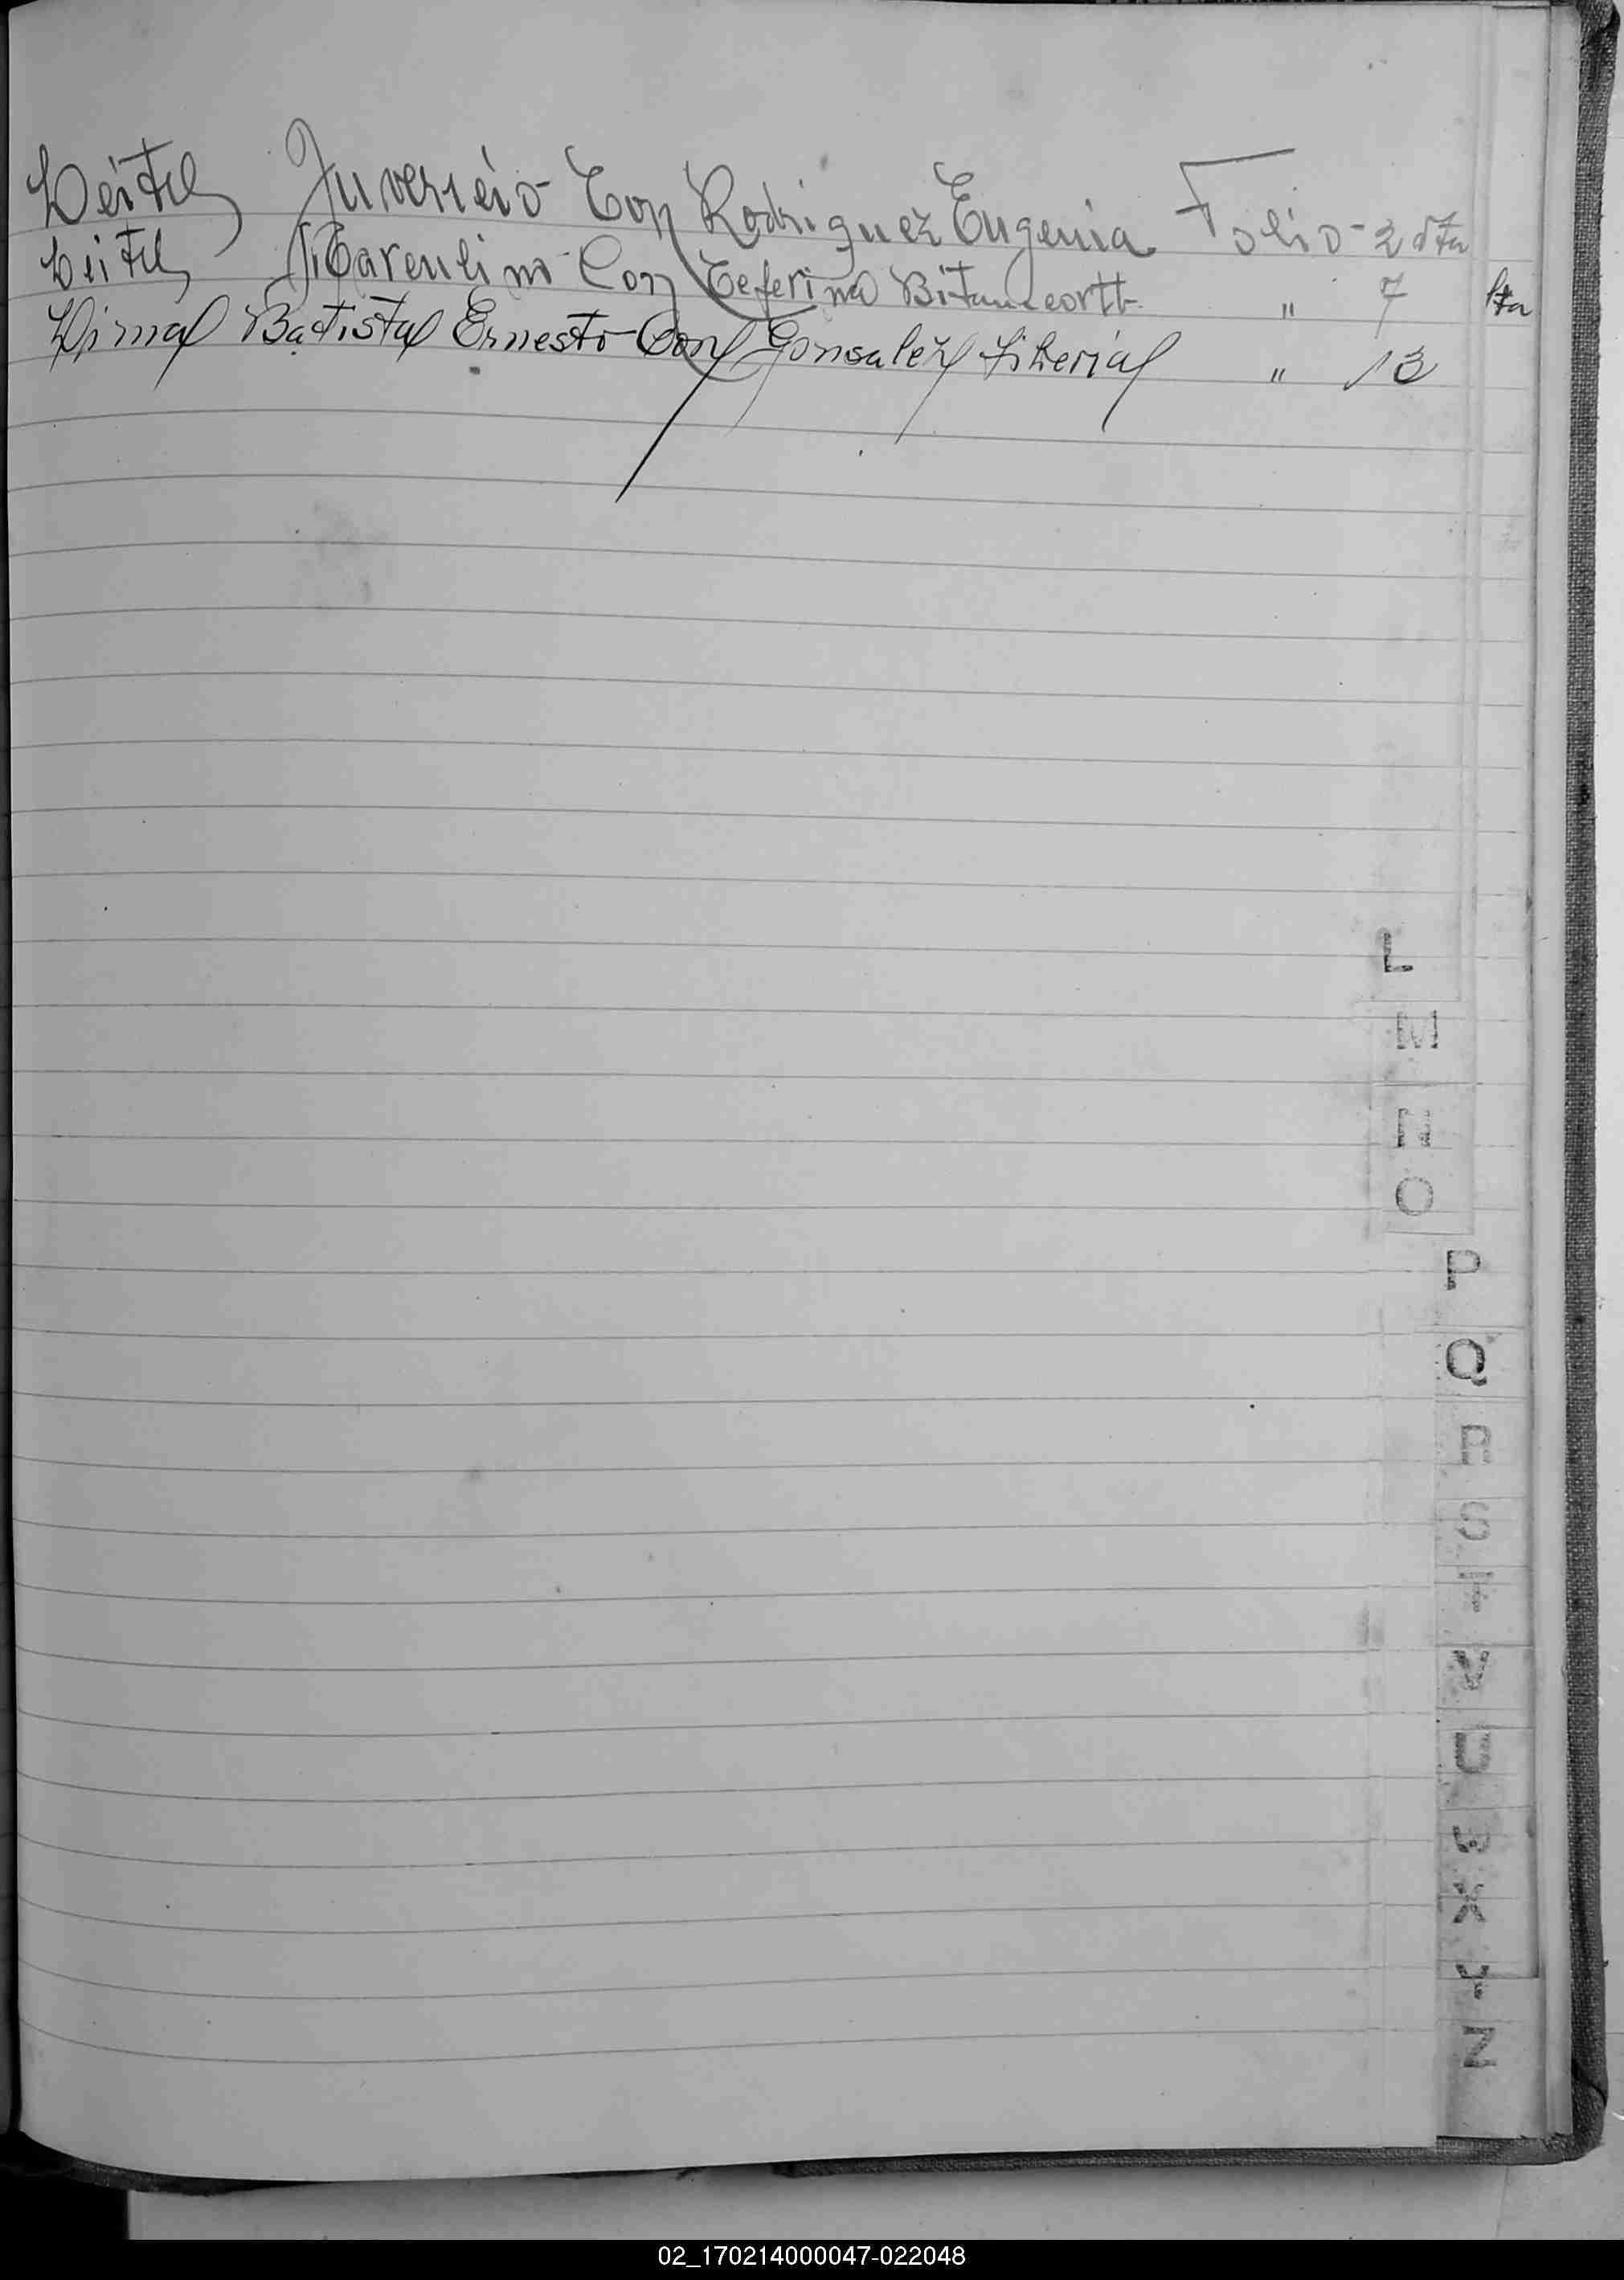 Leites Juvencio Con Rodriguez Eugenia Folio - 2 vta
Leites Marculino Con Ceferina Bitancortt " 7 vta
Batista Ernesto Con Gonsalez Liberia " 13
L
M
N
O
P
Q
R
S
T
V
U
W
X
Y
Z
02_170214000047-022048